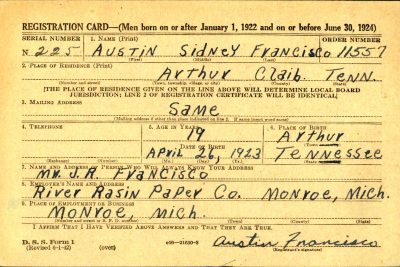 REGISTRATION CARD—(Men born on or after January 1, 1922 and on or before June 30, 1924)
SERIAL NUMBER 1. NAME (Print) ORDER NUMBER
N 225 AUSTIN SIDNEY FRANCISCO 11557
(First) (Middle) (Last)
2. PLACE OF RESIDENCE (Print)
Arthur Claib. Tenn.
(Number and street) (Town, township, village, or city) (County) (State)
[THE PLACE OF RESIDENCE GIVEN ON THE LINE ABOVE WILL DETERMINE LOCAL BOARD
JURISDICTION; LINE 2 OF REGISTRATION CERTIFICATE WILL BE IDENTICAL]
3. MAILING ADDRESS
SAME
(Mailing address if other than place indicated on line 2. If same insert word same)
4. TELEPHONE 5. AGE IN YEARS 6. PLACE OF BIRTH
19 Arthur
DATE OF BIRTH (Town or county)
April 26, 1923 TENNESSEE
(Exchange) (Number) (Mo.) (Day) (Yr.) (State or country)
7. NAME AND ADDRESS OF PERSON WHO WILL ALWAYS KNOW YOUR ADDRESS
Mr. J. R. FRANCISCO
8. EMPLOYER'S NAME AND ADDRESS
River Rasin Paper Co. Monroe, Mich.
9. PLACE OF EMPLOYMENT OR BUSINESS
MONROE, Mich.
(Number and street or R. F. D. number) (Town) (County) (State)
I AFFIRM THAT I HAVE VERIFIED ABOVE ANSWERS AND THAT THEY ARE TRUE.
D. S. S. Form 1
(Revised 6-1-42) (over) 16—21630-2 Austin Francisco
(Registrant's signature)